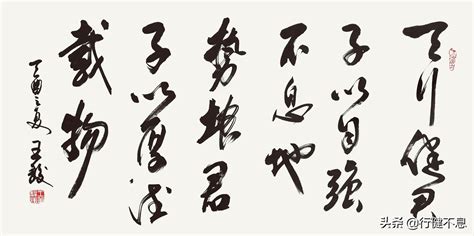 天行健君
子以自强
不息地
勢坤君
子以厚德
載物
丁酉之夏 王
头条 @行健不息